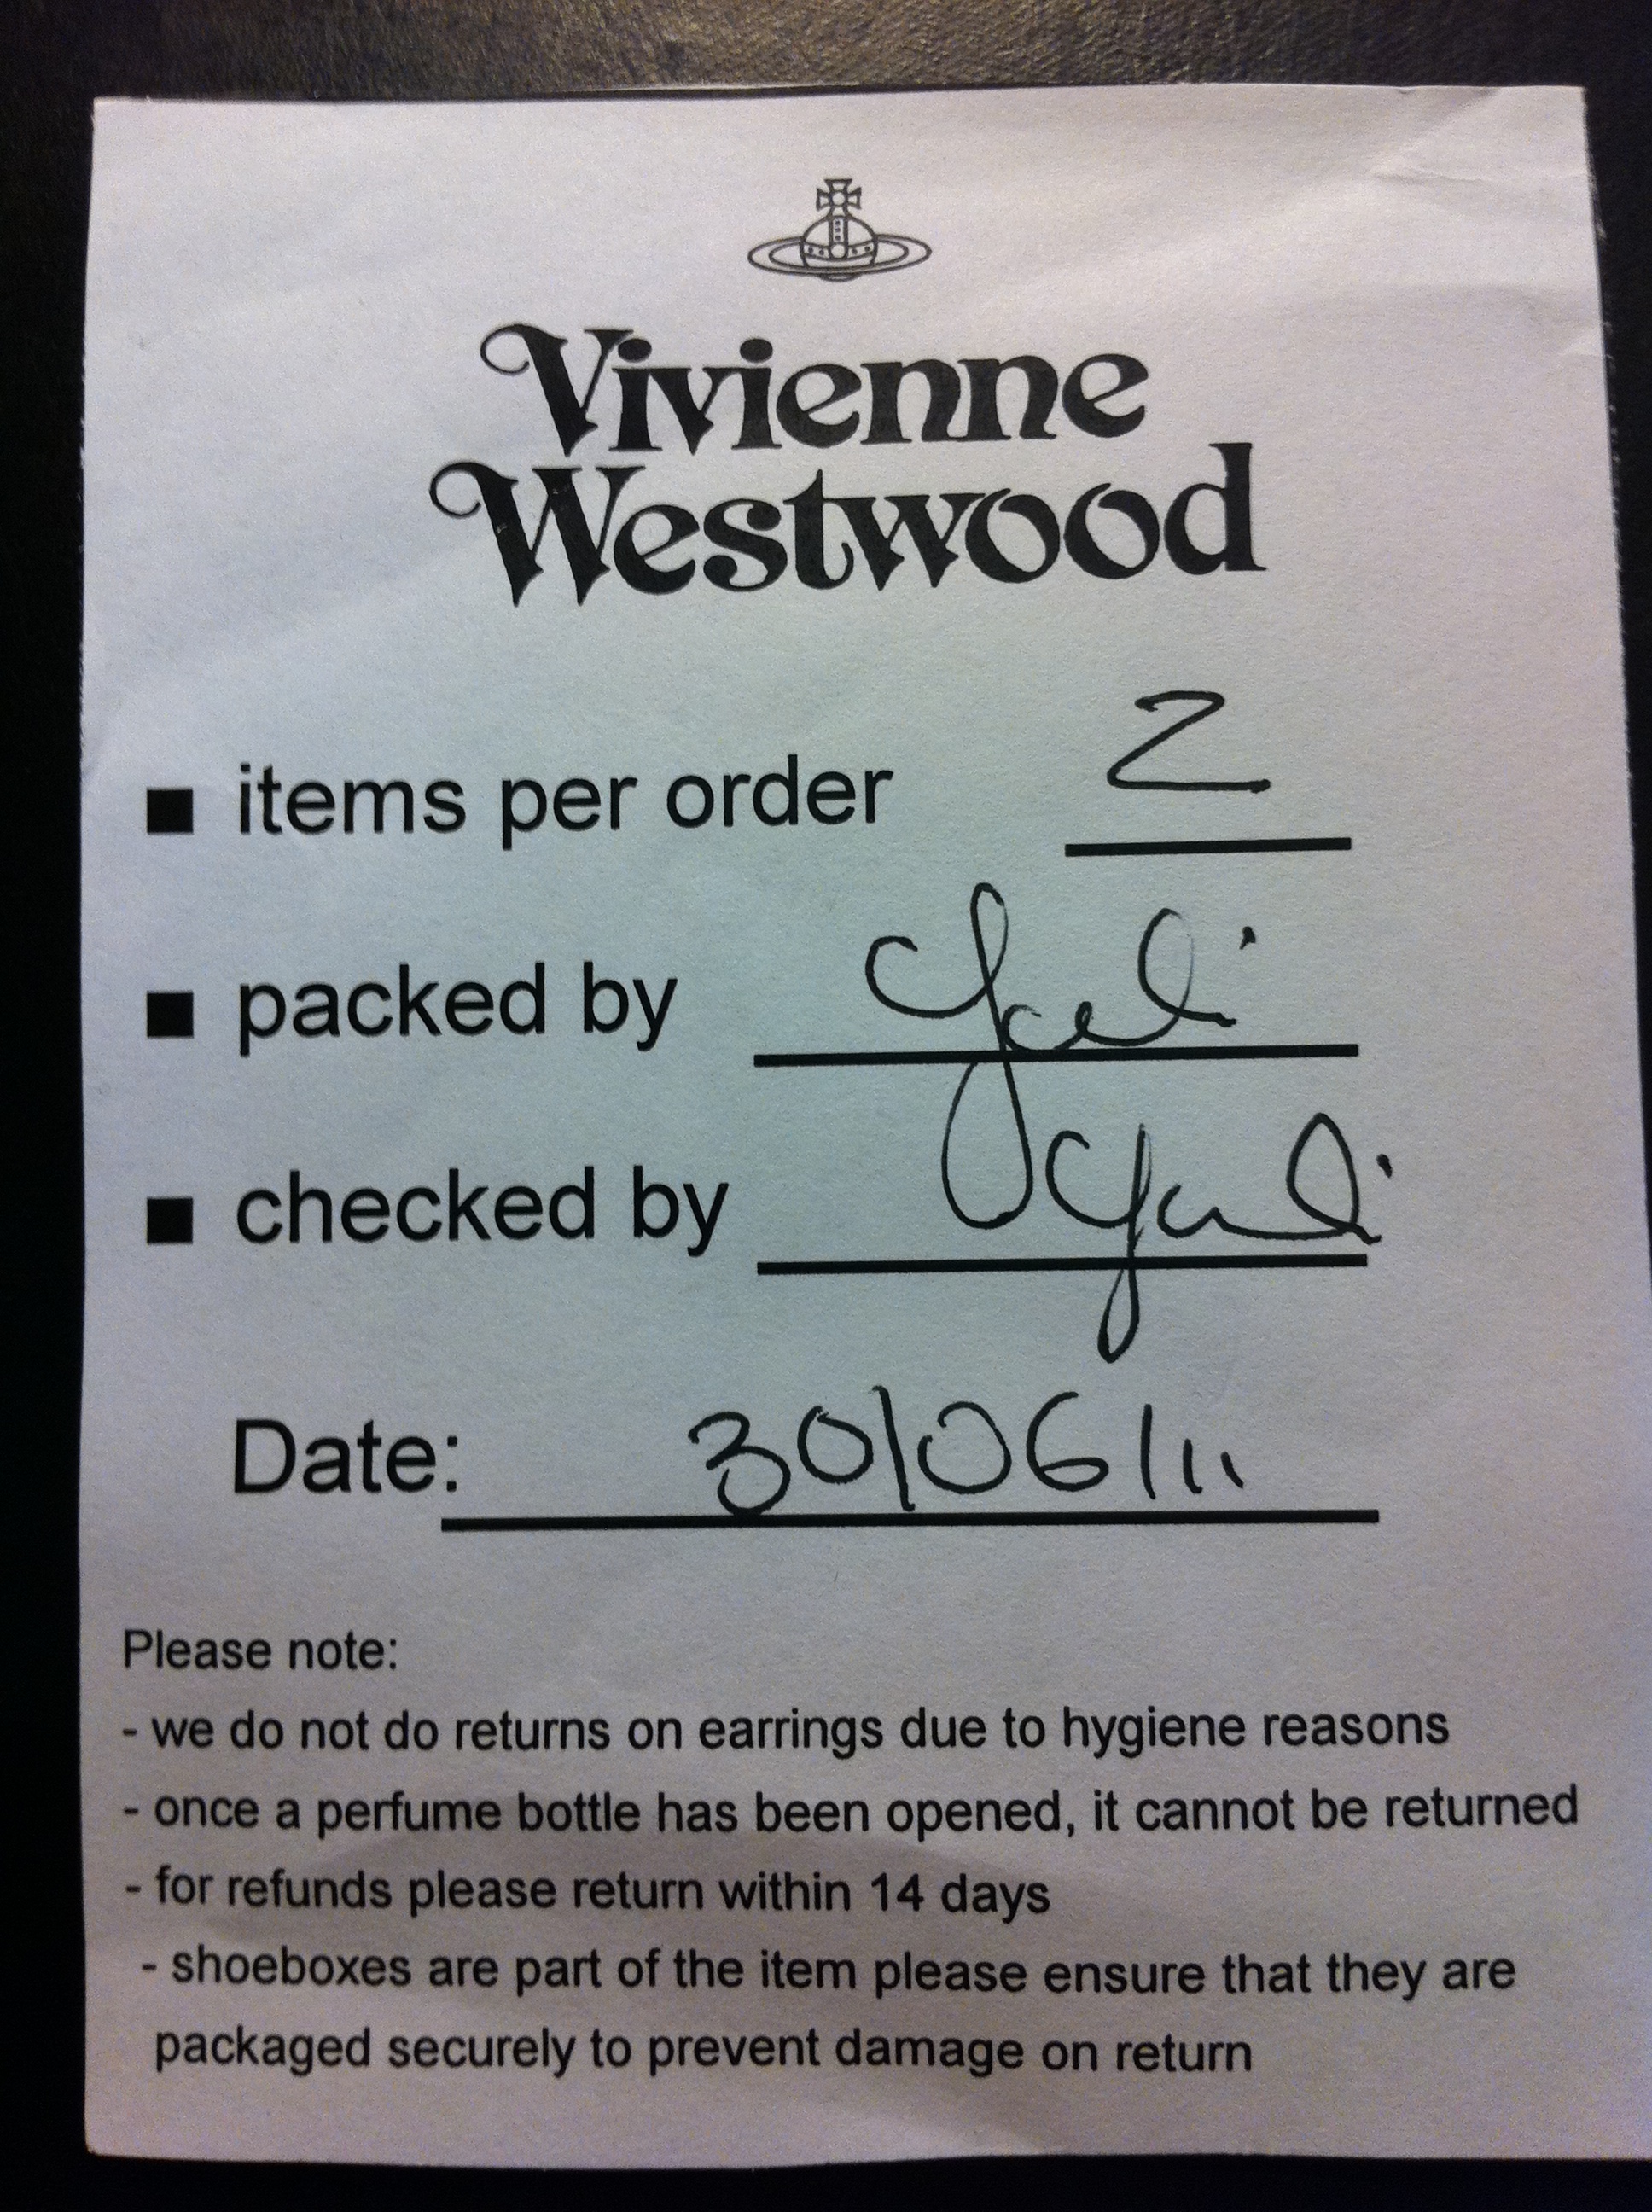 Vivienne
Westwood
▪ items per order 2
▪ packed by
▪ checked by
Date: 30/06/11
Please note:
- we do not do returns on earrings due to hygiene reasons
- once a perfume bottle has been opened, it cannot be returned
- for refunds please return within 14 days
- shoeboxes are part of the item please ensure that they are
packaged securely to prevent damage on return